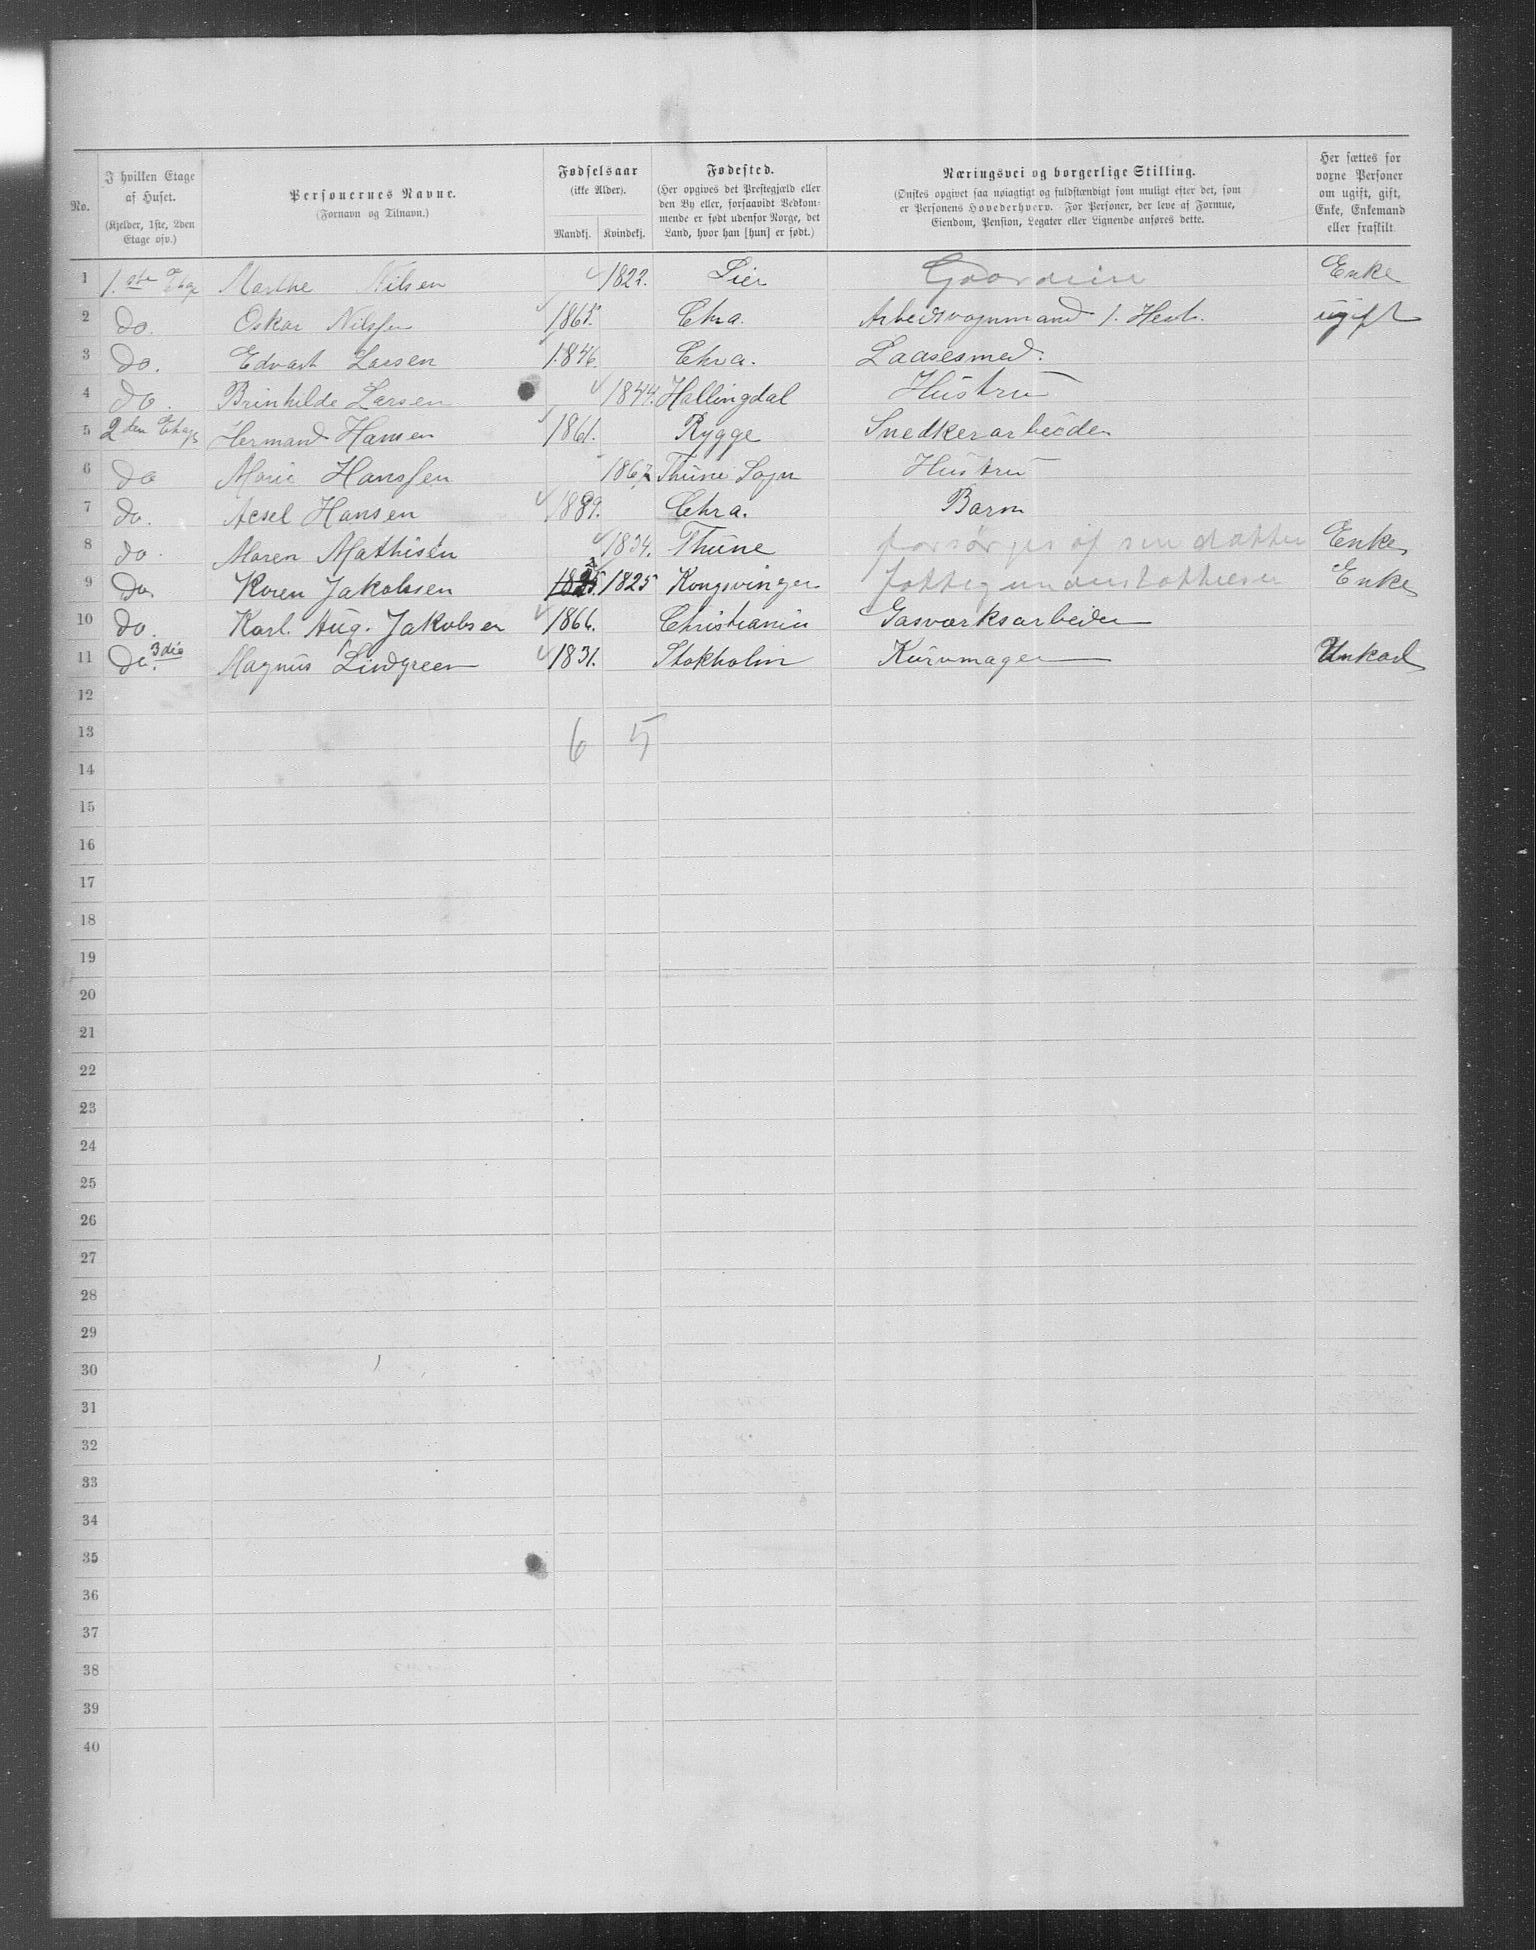 No. I hvilken Etage af Huset. (Kjelder, 1ste, 2den Etage osv.) Personernes Navne. (Fornavn og Tilnavn.) Fødselsaar (ikke Alder). Mandkj. Kvindekj. Fødested. (Her opgives det Prestegjæld eller den By eller, forsaavidt Vedkommende er født udenfor Norge, det Land, hvor han [hun] er født.) Næringsvei og borgerlige Stilling. (Ønskes opgivet saa nøiagtigt og fuldstændigt som muligt efter det, som er Personens Hovederhverv. For Personer, der leve af Formue, Eiendom, Pension, Legater eller Lignende anføres dette. Her sættes for voxne Personer om ugift, gift, Enke, Enkemand eller fraskilt
1 1.ste Etage Marthe Nilsen 1822. Lier Enke
2 Do. Oskar Nilssen 1865. Chra. Arbeidsvognmand 1. Hest. ugift
3 Do. Edvart Larsen 1846. Chra. Laasesmed.
4 Do. Brinhilde Larsen 1844. Hallingdal Hustru
5 2den Etage Hermand Hansen 1861. Rygge Snedkerarbeider
6 Do Marie Hanssen 1867 Thune Sogn Hustru
7 Do. Acsel Hansen 1889. Chra. Barn
8 Do. Maren Mathisen 1834. Thune forsørges af sin datter Enke
9 Do. Karen Jakobsen 1825. 1825 Kongsvinger fattigunderstøttelse Enke
10 Do. Karl. Aug. Jakobsen 1866. Christiania Gasværksarbeider
11 Do. 3die Magnus Lindgreen 1831. Stokholm Kurvmager Unkarl
12
13 6 5
14
15
16
17
18
19
20
21
22
23
24
25
26
27
28
29
30
31
32
33
34
35
36
37
38
39
40